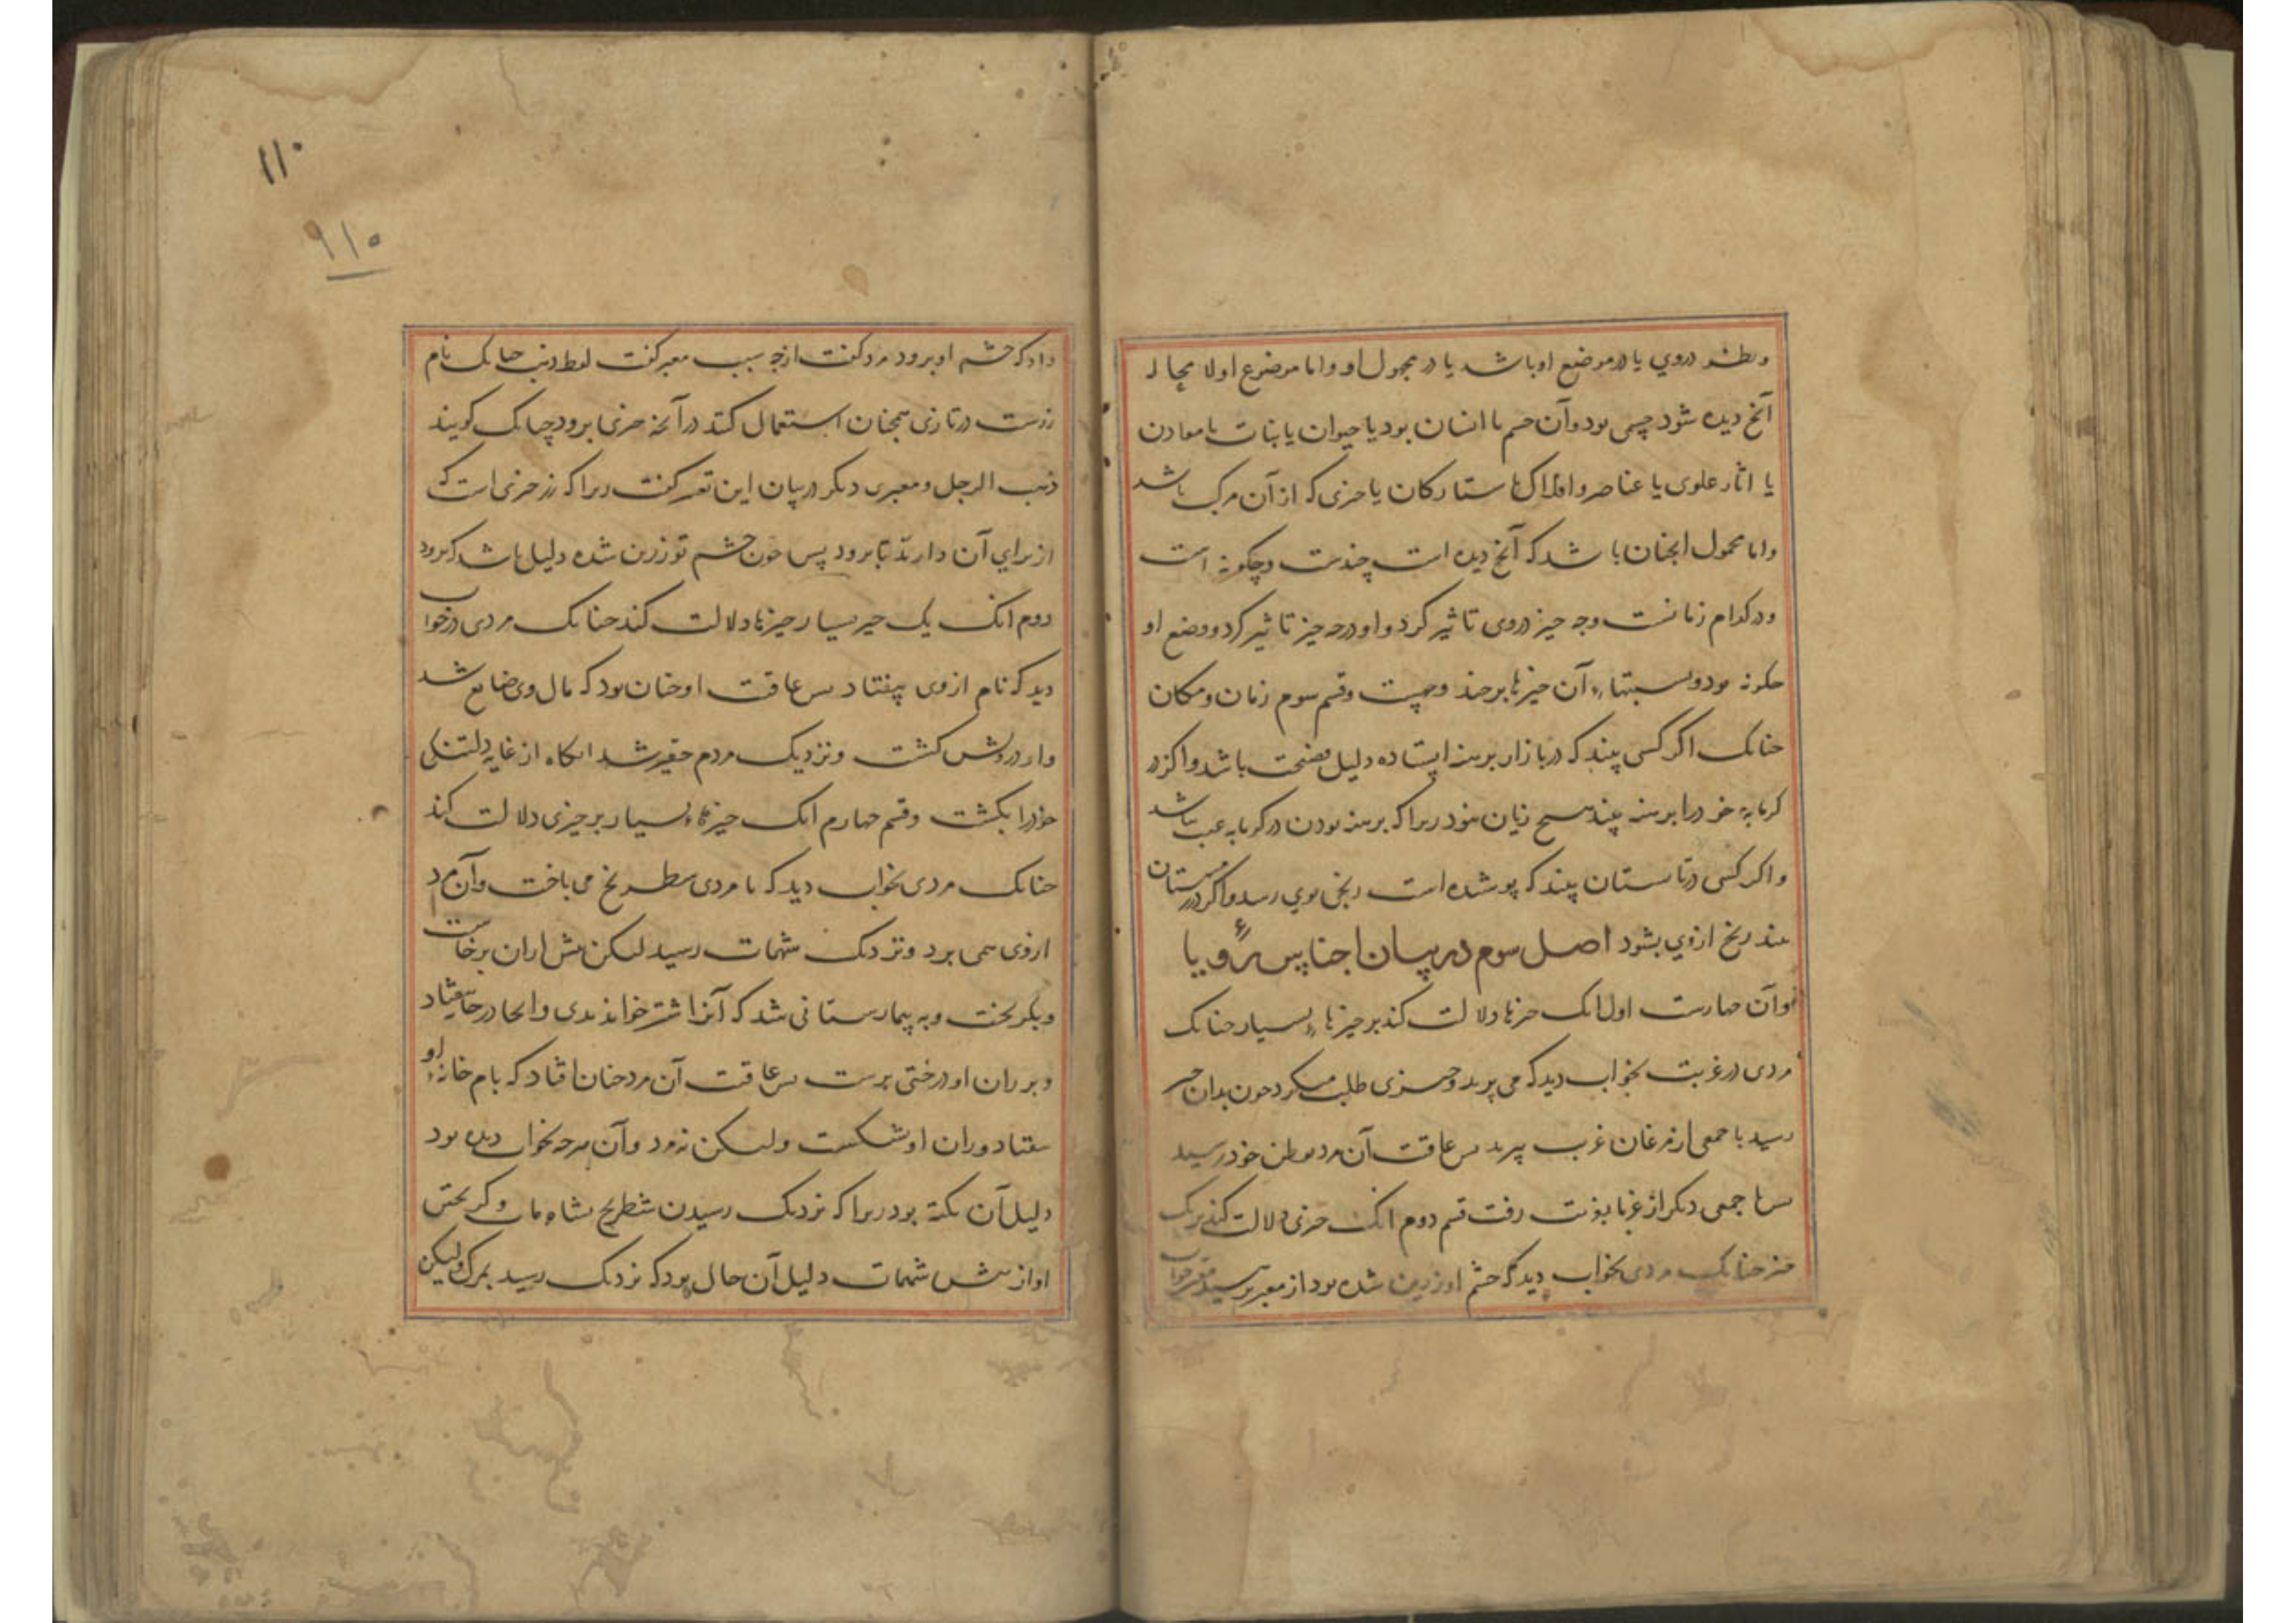 ونظر در وی یا در موضع او باشد یا در محمول او و اما موضوع اولا محاله
آنچ دیده شود چسمی بود و آن جسم یا انسان بود یا حیوان یا نبات یا معادن
یا اثار علوی یا عناصر و افلاک یا ستارکان یا چیزی که از آن مرکب باشد
و اما محمول انجنان باشد که آنچ دیده است چندست و چکونه است
و در کدام زمانست و چه چیز در وی تاثیر کرد و او در چه چیز تاثیر کرد و وضع او
چکونه بود و نسبتهاء آن چیزها بر چند و چیست و قسم سوم زمان و مکان
چنانک اکر کسی بیند که در بازار برهنه ایستاده دلیل فضیحت باشد و اکر در
کرمابه خود را برهنه بیند هیچ زیان نبود زیرا که برهنه بودن در کرمابه عیب نباشد
و اکر کسی در تابستان بیند که پوشیده است رنجی بوی رسد و اکر در زمستان
بیند رنج از وی بشود اصل سوم در بیان اجناس رؤیا
و آن چهارست اول انک چیزها دلالت کند بر چیزهاء بسیار چنانک
مردی در غربت بخواب دید که می پرید و چیزی طلب میکرد چون بدان چیز
رسید با جمعی از مرغان غرب پرید پس عاقبت آن مرد بوطن خود رسید
پس با جمعی دیکر از غربا بغربت رفت قسم دوم انک چیزی دلالت کند بر یک
چیز چنانک مردی بخواب دید که چشم او زرین شده بود از معبر پرسید معبر جواب
داد که چشم او برود مرد کفت از چه سبب معبر کفت لفظ ذهب چنانک نام
زرست در تازی همچنان استعمال کنند در آنچه چیزی برود چنانک کویند
ذهب الرجل و معبری دیکر در بیان این تعبیر کفت زیرا که زر چیزی است که
از برای آن دارند تا برود پس چون چشم تو زرین شده دلیل باشد که برود
دوم انک یک چیز بسیار چیزها دلالت کند چنانک مردی در خواب
دید که نام از وی بیفتاد پس عاقبت او چنان بود که مال وی ضایع شد
و او درویش کشت و نزدیک مردم حقیر شد انکاه از غایه دلتنکی
خود را بکشت و قسم چهارم انک چیزهاء بسیار بر چیزی دلالت کند
چنانک مردی بخواب دید که با مردی شطرنج می باخت و آن مرد
از وی همی برد و نزدیک شهمات رسید لیکن پیش از ان برخاست
و بکریخت و به بیمارستانی شد که آنرا اشتر خواندندی و انجا در جا بیفتاد
و بر ران او درختی برست پس عاقبت آن مرد چنان افتاد که بام خانه او
بیفتاد و ران او بشکست ولیکن نمرد و آن هر چه بخواب دیده بود
دلیل آن نکته بود زیرا که نزدیک رسیدن شطرنج بشاه مات و کریختن
او از پیش شهمات دلیل آن حال بود که نزدیک رسید بمرک ولیکن
۱۱۰
۹۱۵